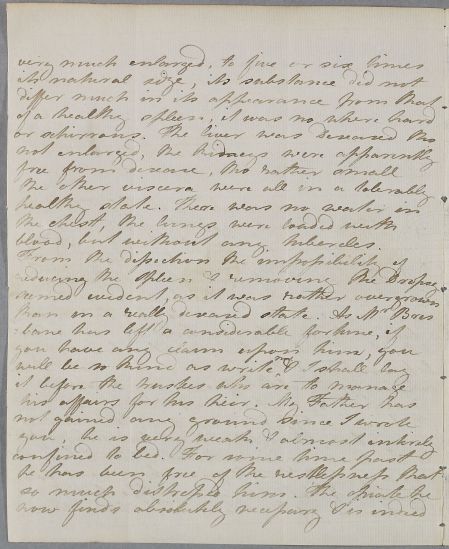 very much enlarged, to five or six times
its natural size, its substance did not
differ much in its appearance from that
of a healthy spleen, it was no where hard
or schirrous. The liver was diseased tho
not enlarged, the kidneys were apparently
free from disease, tho rather small
the other viscera were all in a tolerably
healthy state. There was no water in
the chest, the lungs were loaded with
blood, but without any tubercles.
From the dissection the impossibility of
reducing the spleen & removing the Dropsy
seemed evident, as it was rather overgrown
than in a really diseased state. As Mr
lane has left a considerable fortune, if
you have any claim upon him, you
will be so kind as write me & I shall lay
it before the trustees who are to manage
his affairs for his heir. My Father has
not gained any ground since I wrote
you, he is very weak & almost intirely
confined to bed. For some time past
he has been free of the restlessness that
so much distressed him. The opiate he
now finds absolutely necessary & is indeed